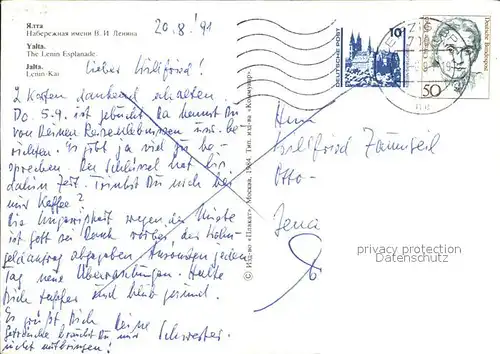 Ялта
Набережная имени В. И. Ленина
Yalta.
The Lenin Esplanade.
Jalta.
Lenin-Kai
20.8.'91
Lieber Wilfried!
2 Karten dankend erhalten.
Do. 5.9. ist gebucht da kannst Du
von Deinen Reiseerlebnissen usw. be-
richten. Es gibt ja viel zu be-
sprechen. Der Schlüssel hat bis
dahin Zeit. Trinkst Du noch bei
mir Kaffee?
Die Ungewißheit wegen der Miete
ist Gott sei Dank vorbei, der Wohn-
geldantrag abgegeben. Ansonsten jeden
Tag neue Überraschungen. Halte
Dich tapfer und bleib gesund.
Es grüßt Dich Deine Schwester.
Getränke brauchst Du nur
nicht mitbringen!
© Изд-во «Плакат», Москва, 1984. Тип. изд-ва «Коммунар»
DEUTSCHE POST
10
Deutsche Bundespost
50
Herrn
Wilfried
Otto-
Jena
privacy protection
Datenschutz